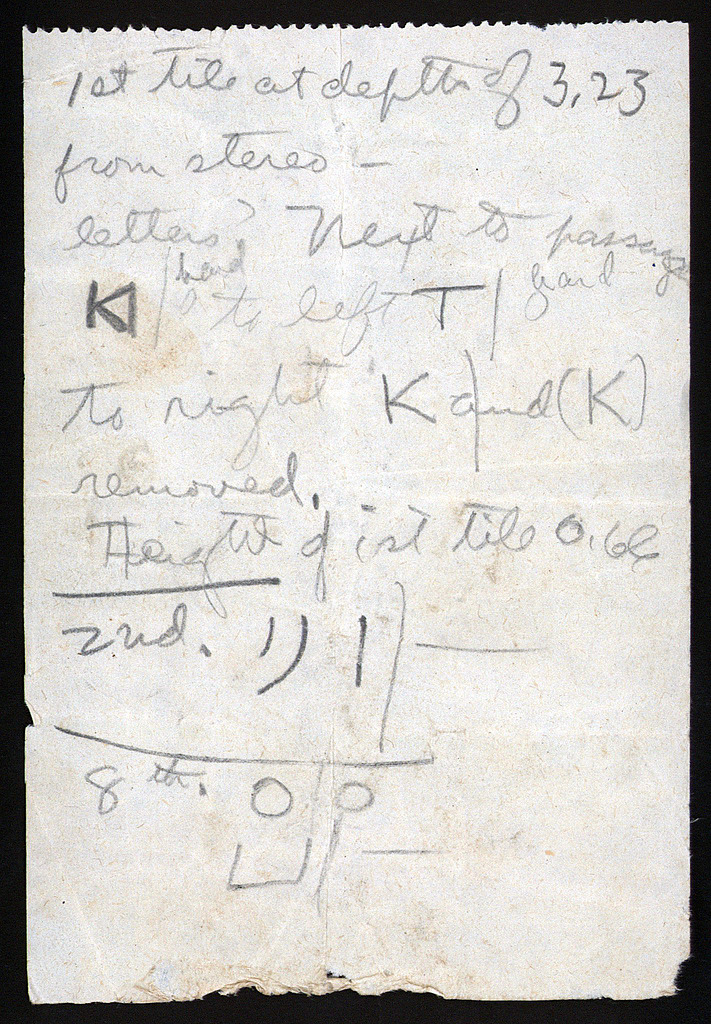 1st tile at depth of 3.23
from stereo –
letters? Next to passage
K| / hand to left T / hand
to right K / and (K)
removed.
Height of 1st tile 0.66
2nd. 1) | / —
8th. O / O
⊔ / —